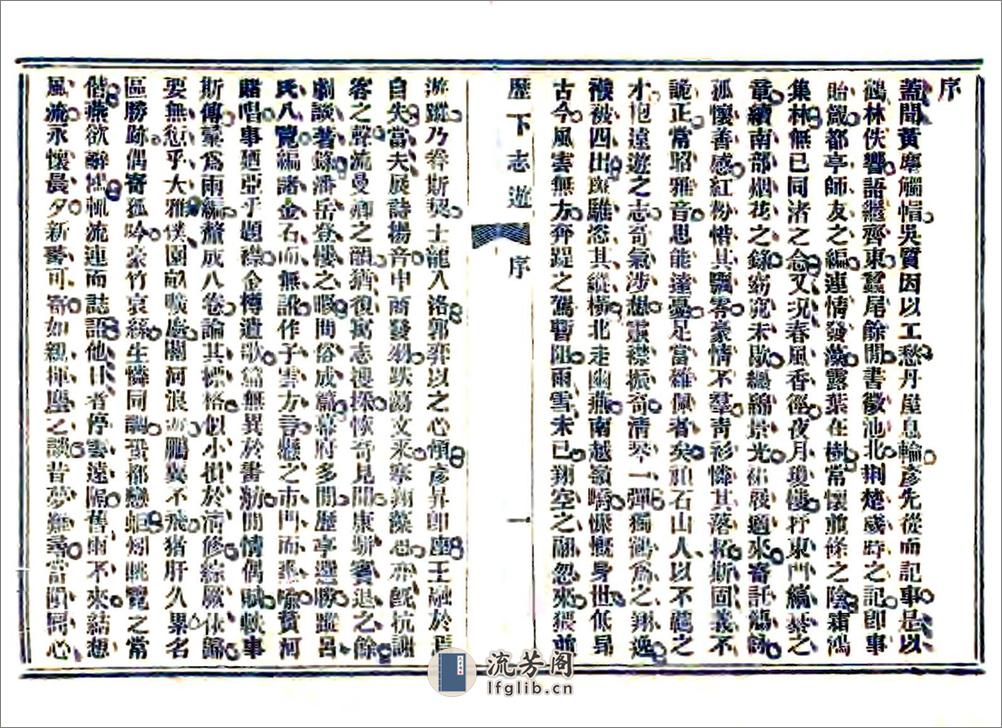 序
蓋聞黃塵觸帽吳質因以工愁丹屋息輪彥先從而記事是以
鶴林佚響語繼齊東蠶尾餘閒書徵池北荆楚歲時之記卽事
貽都亭師友之編連情發藻露葉在樹常懷前修之陰霜鴻
集林無已同渚之念又况春風香徑夜月瓊樓抒東門縞綦之
章續南部烟花之錄窈窕未歇纒綿增光祐段適來寄託觴詠
孤懷善感紅粉惜其飄零豪情不羣靑衫憐其落拓斯固義不
詭正常昭雅音思能達憂足當雜佩者矣石山人以不羈之
才抱遠遊之志奇氣涉想靈襟振奇淸琴一彈獨鶴爲之翔逸
襆被四出斑騅恣其縱橫北走幽燕南越嶺嶠慷慨身世低昂
古今風雲無方奔踶之駕暫阻雨雪未已翔空之翮忽來猿前
歷下志遊
序
一
游蹤乃春斯契士龍入洛郭弈以之心傾彥昇卽座王融於焉
自失當夫展詩揚音申商發羽跌蕩文來翔藻思亦旣抗謝
客之聲流曼卿之韻猶復寓志搜採恢奇見聞康騈賓退之餘
劇談著錄潘岳登樓之暇問俗成篇幕府多閒歷亭選勝蹤呂
氏八覽編諸金石而無訛作子雲方言懸之市門而無愧贊河
賭唱事廼亞于題襟金樽遺歌篇無異於畫舫閒情偶賦軼事
斯傳彙爲兩編釐成八卷論其標格似小損於淸修綜厥依歸
要無愆乎大雅樸園獻曠處關河浪游鵬翼不飛猪肝久累名
區勝跡偶寄孤吟豪竹哀絲生憐同調蛩都戀蚷蛩眺覽之常
偕燕欲辭鴻輒流連而誌語他日者停雲遠隔舊雨不來結想
風流永懷晨夕新書可寄如親揮麈之談昔夢難尋當閒同心
流芳阁
lfglib.cn